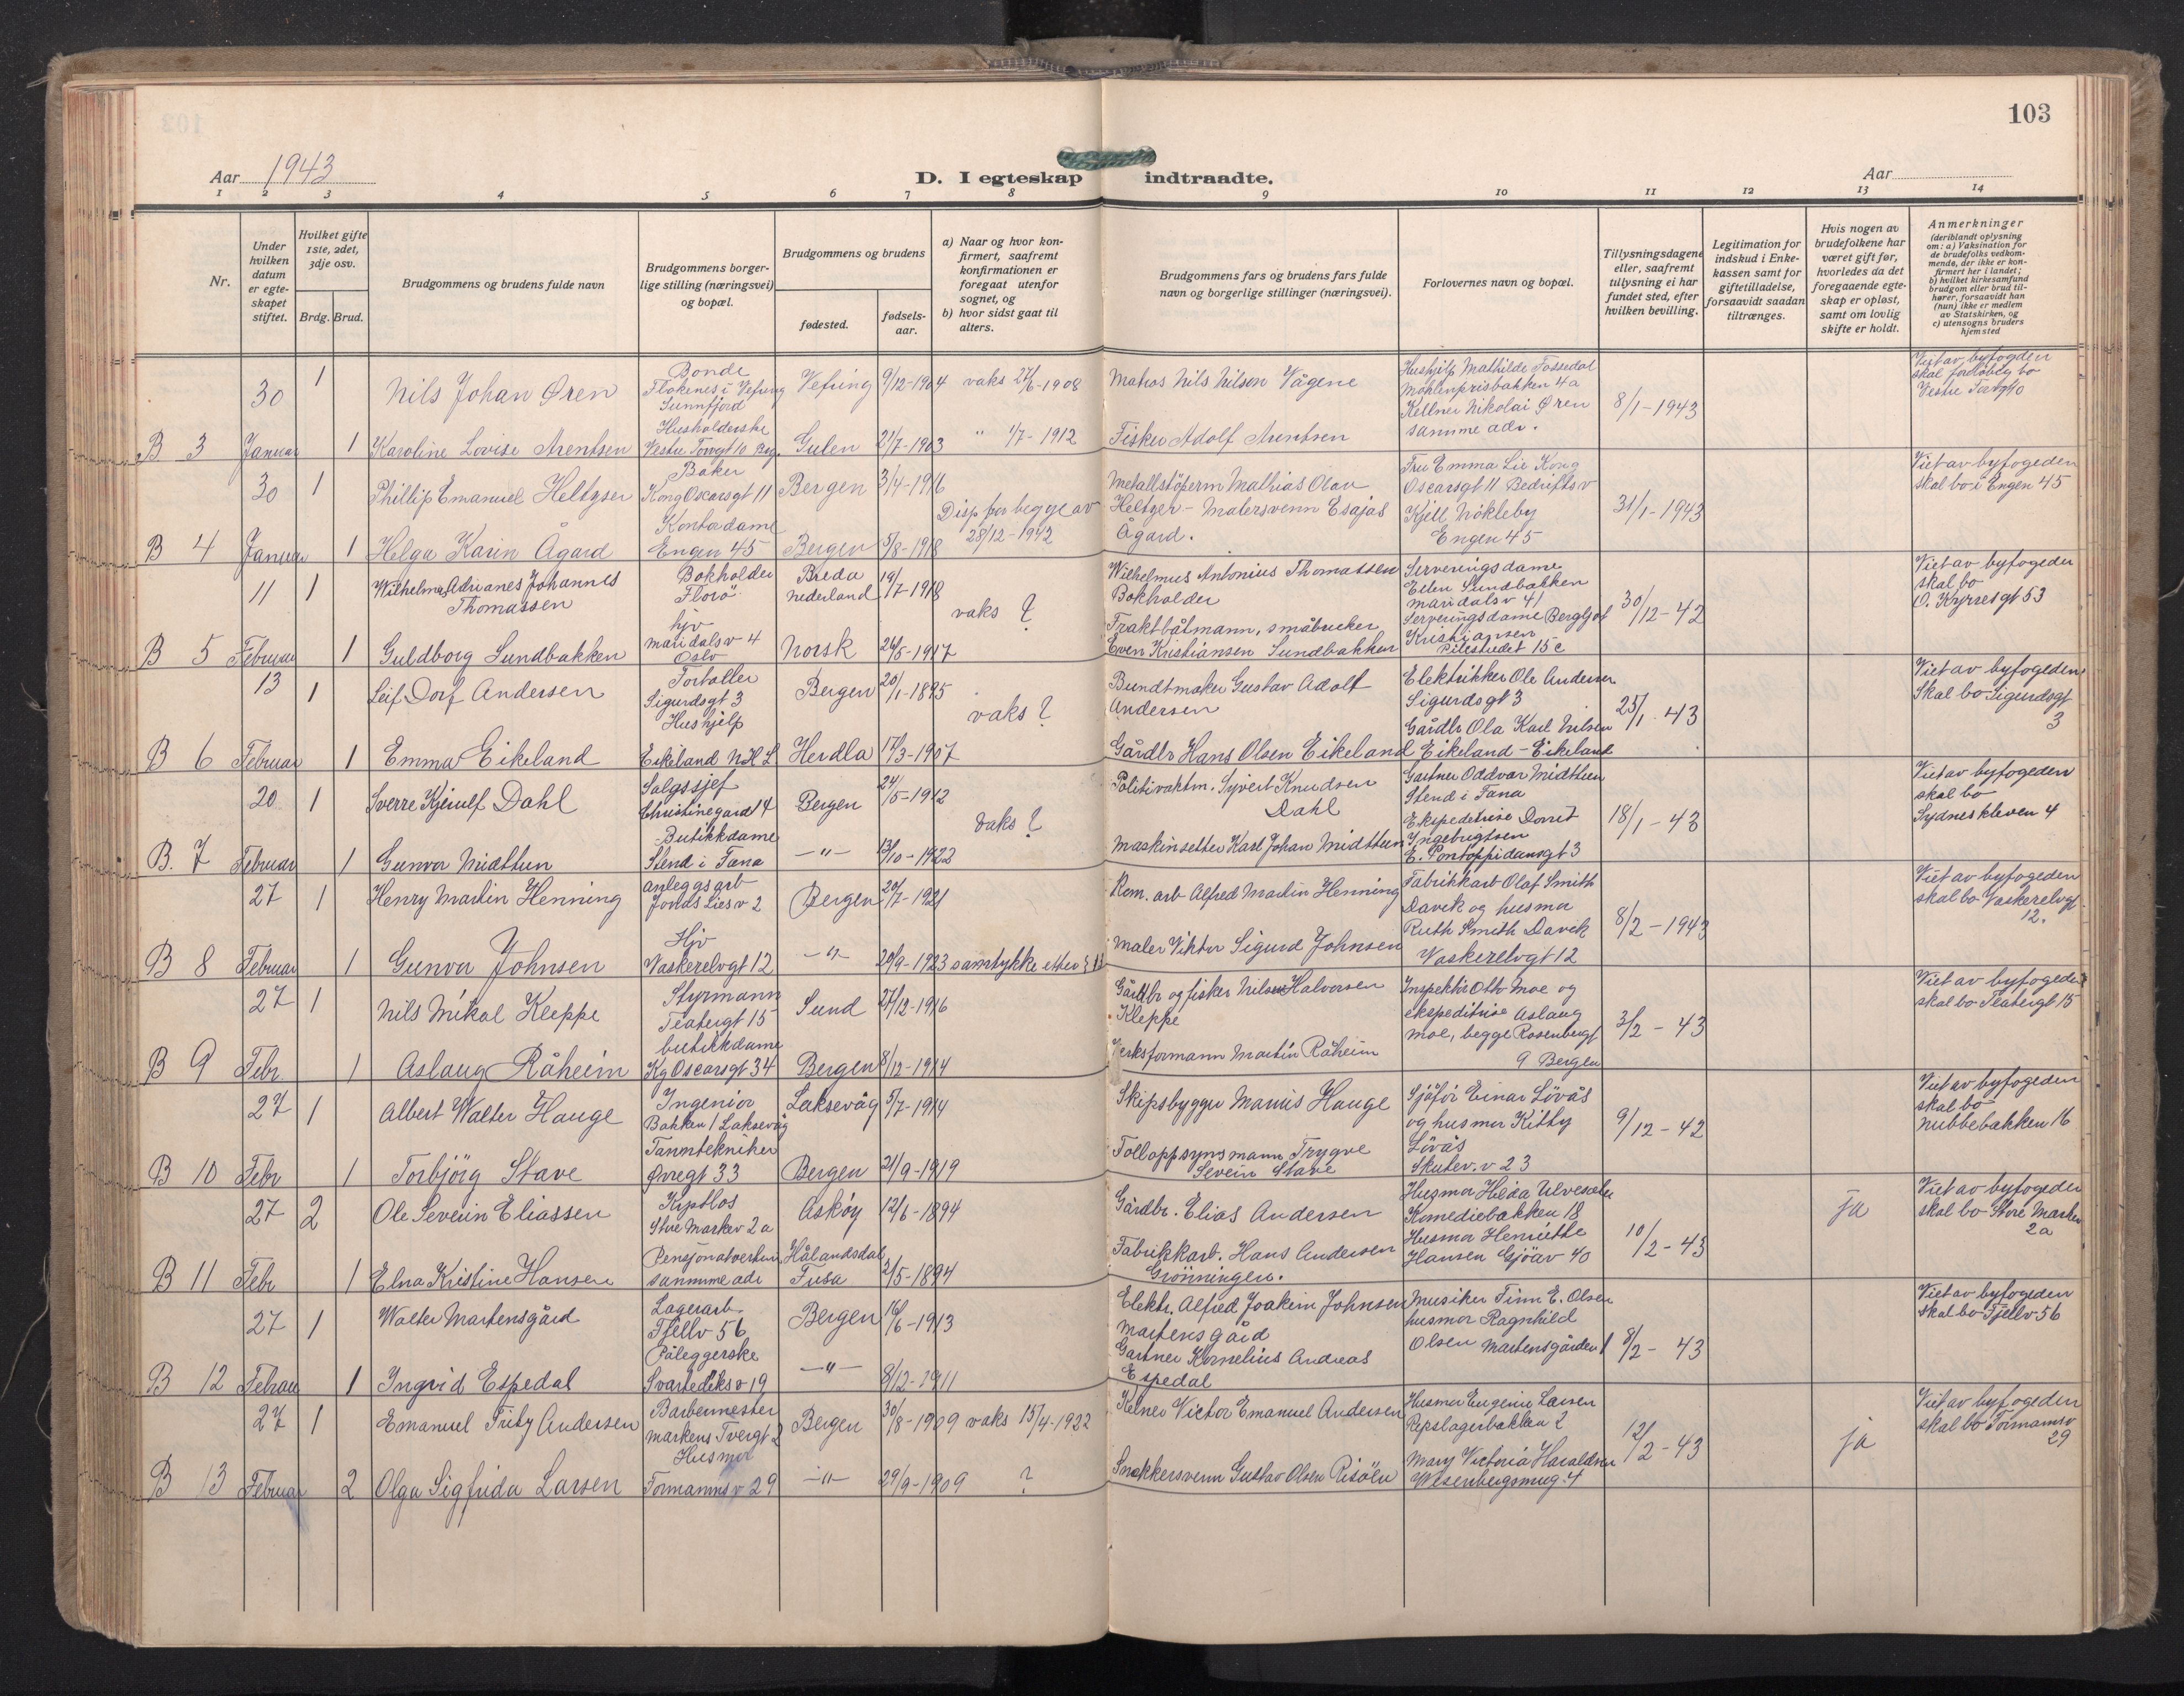 103
Aar 1943
D. I egteskap indtraadte.
Aar
1 2 3 4 5 6 7 8 9 10 11 12 13 14
Nr.
Under hvilken datum er egteskapet stiftet.
Hvilket gifte 1ste, 2det, 3dje osv.
Brdg. Brud.
Brudgommens og brudens fulde navn
Brudgommens borgerlige stilling (næringsvei) og bopæl.
Brudgommens og brudens
fødested.
fødselsaar.
a) Naar og hvor konfirmert, saafremt konfirmationen er foregaat utenfor sognet, og
b) hvor sidst gaat til alters.
Brudgommens fars og brudens fars fulde navn og borgerlige stillinger (næringsvei).
Forlovernes navn og bopæl.
Tillysningsdagene eller, saafremt tillysning ei har fundet sted, efter hvilken bevilling.
Legitimation for indskud i Enkekassen samt for giftetilladelse, forsaavidt saadan tiltrænges.
Hvis nogen av brudefolkene har været gift før, hvorledes da det foregaaende egteskap er opløst, samt om lovlig skifte er holdt.
Anmerkninger (deriblandt oplysning om: a) Vaksination for de brudefolks vedkommende, der ikke er konfirmert her i landet; b) hvilket kirkesamfund brudgom eller brud tilhører, forsaavidt han (hun) ikke er medlem av Statskirken, og c) utensogns bruders hjemsted
30 1 Nils Johan Øren
Bonde
Flokenes i Vefring
Sunnfjord
Vefring 9/12-1904 vaks 27/6-1908
Matros Nils Nilsen Vågene
Hushjelp Mathilde Fossedal
Møhlenprisbakken 4a
Kellner Nikolai Øren
samme adr.
8/1-1943
Viet av byfogden
skal forløbig bo
Vestre Torvgt 10
B 3 Januar 1 Karoline Lovise Arentsen
Husholderske
Vestre Torvgt 10 Brg.
Gulen 21/7-1903 " 1/7-1912
Fisker Adolf Arentsen
30 1 Phillip Emanuel Heltzer
Baker
Kong Oscarsgt 11
Bergen 3/4-1916
Disp for begge av
28/12-1942
Metallstøperm Mathias Olav
Heltzer - Malersvenn Esajas
Ågard.
Fru Emma Lie Kong
Oscarsgt 11 Bedriftsv
Kjell Nökleby
Engen 45
31/1-1943
Viet av byfogeden
skal bo i Engen 45
B 4 Januar 1 Helga Karin Ågard
Kontordame
Engen 45
Bergen 5/8-1918
11 1 Wilhelmus Adrianes Johannes
Thomassen
Bokholder
Florö
Breda
nederland 19/7-1918
vaks ?
Wilhelmus Antonius Thomassen
Bokholder
Serveringsdame
Ellen Sundbakken
Maridalsv 41
Serveringsdame Bergljot
Kristiansen
Pilestredet 15c
30/12-42
Viet av byfogeden
skal bo
O. Kyrresgt 53
B 5 Februar 1 Guldborg Sundbakken
hjv
Maridalsv 4
Oslo
Norsk 26/5-1917
Fraktbåtmann, småbruker
Even Kristiansen Sundbakken
13 1 Leif Dorf Andersen
Forvalter
Sigurdsgt 3
Bergen 20/1-1895
vaks ?
Bundtmaker Gustav Adolf
Andersen
Elektrikker Ole Andersen
Sigurdsgt 3
Gårdbr Ola Karl Nilsen
Eikeland - Eikeland
25/1-43
Viet av byfogeden
Skal bo Sigurdsgt
3
B 6 Februar 1 Emma Eikeland
Hushjelp
Eikeland N.H.L
Herdla 17/3-1907
Gårdbr Hans Olsen Eikeland
20 1 Sverre Kjerulf Dahl
Salgssjef
Christinegaard 14
Bergen 24/5-1912
vaks ?
Politivaktm. Syvert Knudsen
Dahl
Gartner Oddvar Midttun
Stend i Fana
Ekspeditrise Dorrit
Ingebrigtsen
E. Pontoppidansgt 3
18/1-43
Viet av byfogeden
skal bo
Sydneskleven 4
B. 7 Februar 1 Gunvor Midttun
Butikkdame
Stend i Fana
-"- 13/10-1922
Maskinsetter Karl Johan Midttun
27 1 Henry Martin Henning
anleggsarb
Jonas Liesv 2
Bergen 20/7-1921
Kom. arb Alfred Martin Henning
Fabrikkarb Olaf Smith
Davik og husmor
Ruth Smith Davik
Vaskerelvgt 12
8/2-1943
Viet av byfogeden
skal bo Vaskerelvgt
12.
B 8 Februar 1 Gunvor Johnsen
Hjv
Vaskerelvgt 12
-"- 20/9-1923 samtykke etter § 11
Maler Viktor Sigurd Johnsen
27 1 Nils Mikal Kleppe
Styrmann
Teatergt 15
Sund 27/12-1916
Gårdbr og fisker Nils Halvorsen
Kleppe
Inspektör Otto Moe og
ekspeditrise Aslaug
Moe, begge Rosenbergt
9 Bergen
3/2-43
Viet av byfogeden
skal bo Teatergt 15
B 9 Febr. 1 Aslaug Råheim
butikkdame
Kg Oscarsgt 34
Bergen 8/12-1914
Verksformann Martin Råheim
27 1 Albert Walter Hauge
Ingeniør
Bakken 1 Laksevåg
Laksevåg 5/7-1914
Skipsbygger Marius Hauge
Sjåför Einar Lövås
og husmor Kitty
Lövås
Skutev. v 23
9/12-42
Viet av byfogeden
skal bo
Nubbebakken 16
B 10 Febr 1 Torbjörg Stave
Tanntekniker
Øvregt 33
Bergen 21/9-1919
Tolloppsynsmann Trygve
Severin Stave
27 2 Ole Severin Eliassen
Kystlos
Store Markev 2a
Asköy 12/6-1894
Gårdbr. Elias Andersen
Husmor Hilda Ulvesæter
Komediebakken 18
Husmor Henriette
Hansen Gjöav 40
10/2-43
ja
Viet av byfogeden
skal bo Store Markev
2a
B 11 Febr 1 Elna Kristine Hansen
Pensjonatvertinne
sammme adr
Hålandsdal
Fusa 2/5-1894
Fabrikkarb. Hans Andersen
Grönningen.
27 1 Walter Martensgård
Lagerarb.
Fjellv 56
Bergen 16/6-1913
Elektr. Alfred Joakim Johnsen
Martensgård
Musiker Finn E. Olsen
husmor Ragnhild
Olsen Martensgården 1
8/2-43
Viet av byfogeden
skal bo Fjellv 56
B 12 Februar 1 Ingrid Espedal
Påleggerske
Svartediksv 19
-"- 8/12-1911
Gartner Kornelius Andreas
Espedal
27 1 Emanuel Fritz Andersen
Barbermester
Markens Tvergt 2
Bergen 30/8-1909 vaks 15/4-1922
Kelner Victor Emanuel Andersen
Husmor Eugenie Larsen
Repslagerbakken 2
Mary Victoria Haraldsen
Wesenbergsmug. 4
12/2-43
ja
Viet av byfogeden
skal bo Formannsv
29
B 13 Februar 2 Olga Sigfrida Larsen
Husmor
Formannsv 29
-"- 29/9-1909 ?
Snekkersvenn Gustav Olsen Risöen